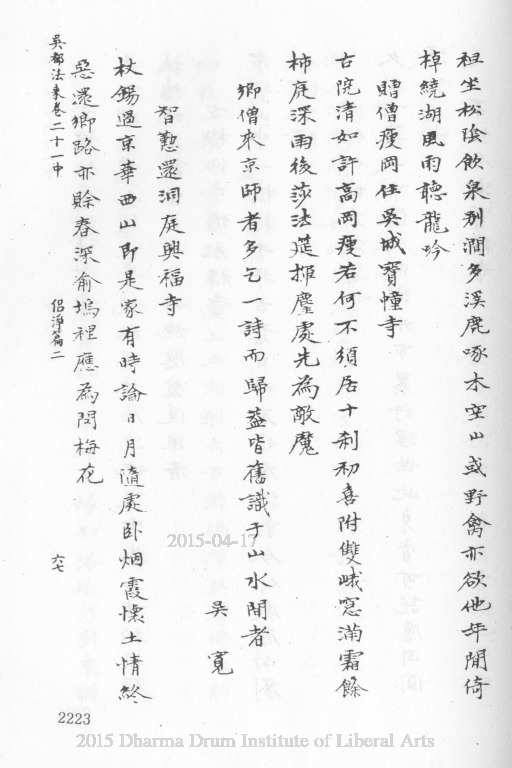 祖坐松陰飲泉別澗多溪鹿啄木空山或野禽亦欲他年閒倚
棹繞湖風雨聽龍吟
贈僧瘦岡住吳城寶幢寺
古院清如許高岡瘦若何不須居十刹初喜附雙峨窓滿霜餘
柿庭深雨後莎法筵揮麈處先為敵魔
鄉僧來京師者多乞一詩而歸蓋皆舊識于山水間者
吳寬
智懃還洞庭興福寺
杖錫過京華西山即是家有時論日月隨處卧烟霞懷土情終
惡還鄉路亦賒春深俞塢裡應為問梅花
吳都法乘卷二十一中
侶淨篇二
六七
2223
2015-04-17
2015 Dharma Drum Institute of Liberal Arts